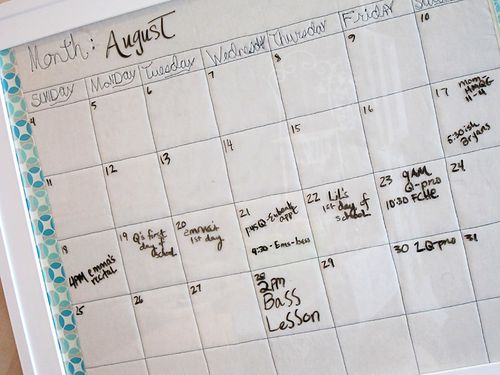 Month: August
SUNDAY MONDAY TUESDAY Wednesday Thursday Friday
4 5 6 7 8 9 10
11 12 13 14 15 16 17
mom
11-4
5:30ish
Bryans
18 19 20 21 22 23 24
4PM emma's
recital
Q's first
day of
school
emma's
1st day
1:45 Q-
appt
9:30-Ems-bass
Lil's
1st day of
school
9AM
Q-pno
10:30 FCHE
25 26 27 28 29 30 31
2pm
Bass
Lesson
Q-pno